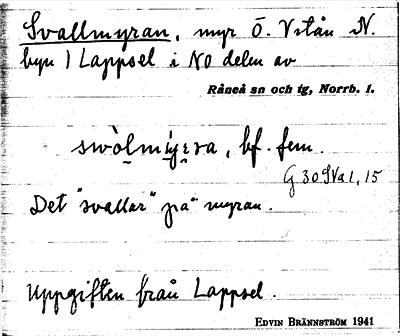 Svallmyran, myr Ö. Vitån N.
byn Lappsel i NO delen av
Råneå sn och tg, Norrb. l.
bf. fem.
G 30 SVa1, 15
Det "svallar" på myran.
Uppgiften från Lappsel.
EDVIN BRÄNNSTRÖM 1941